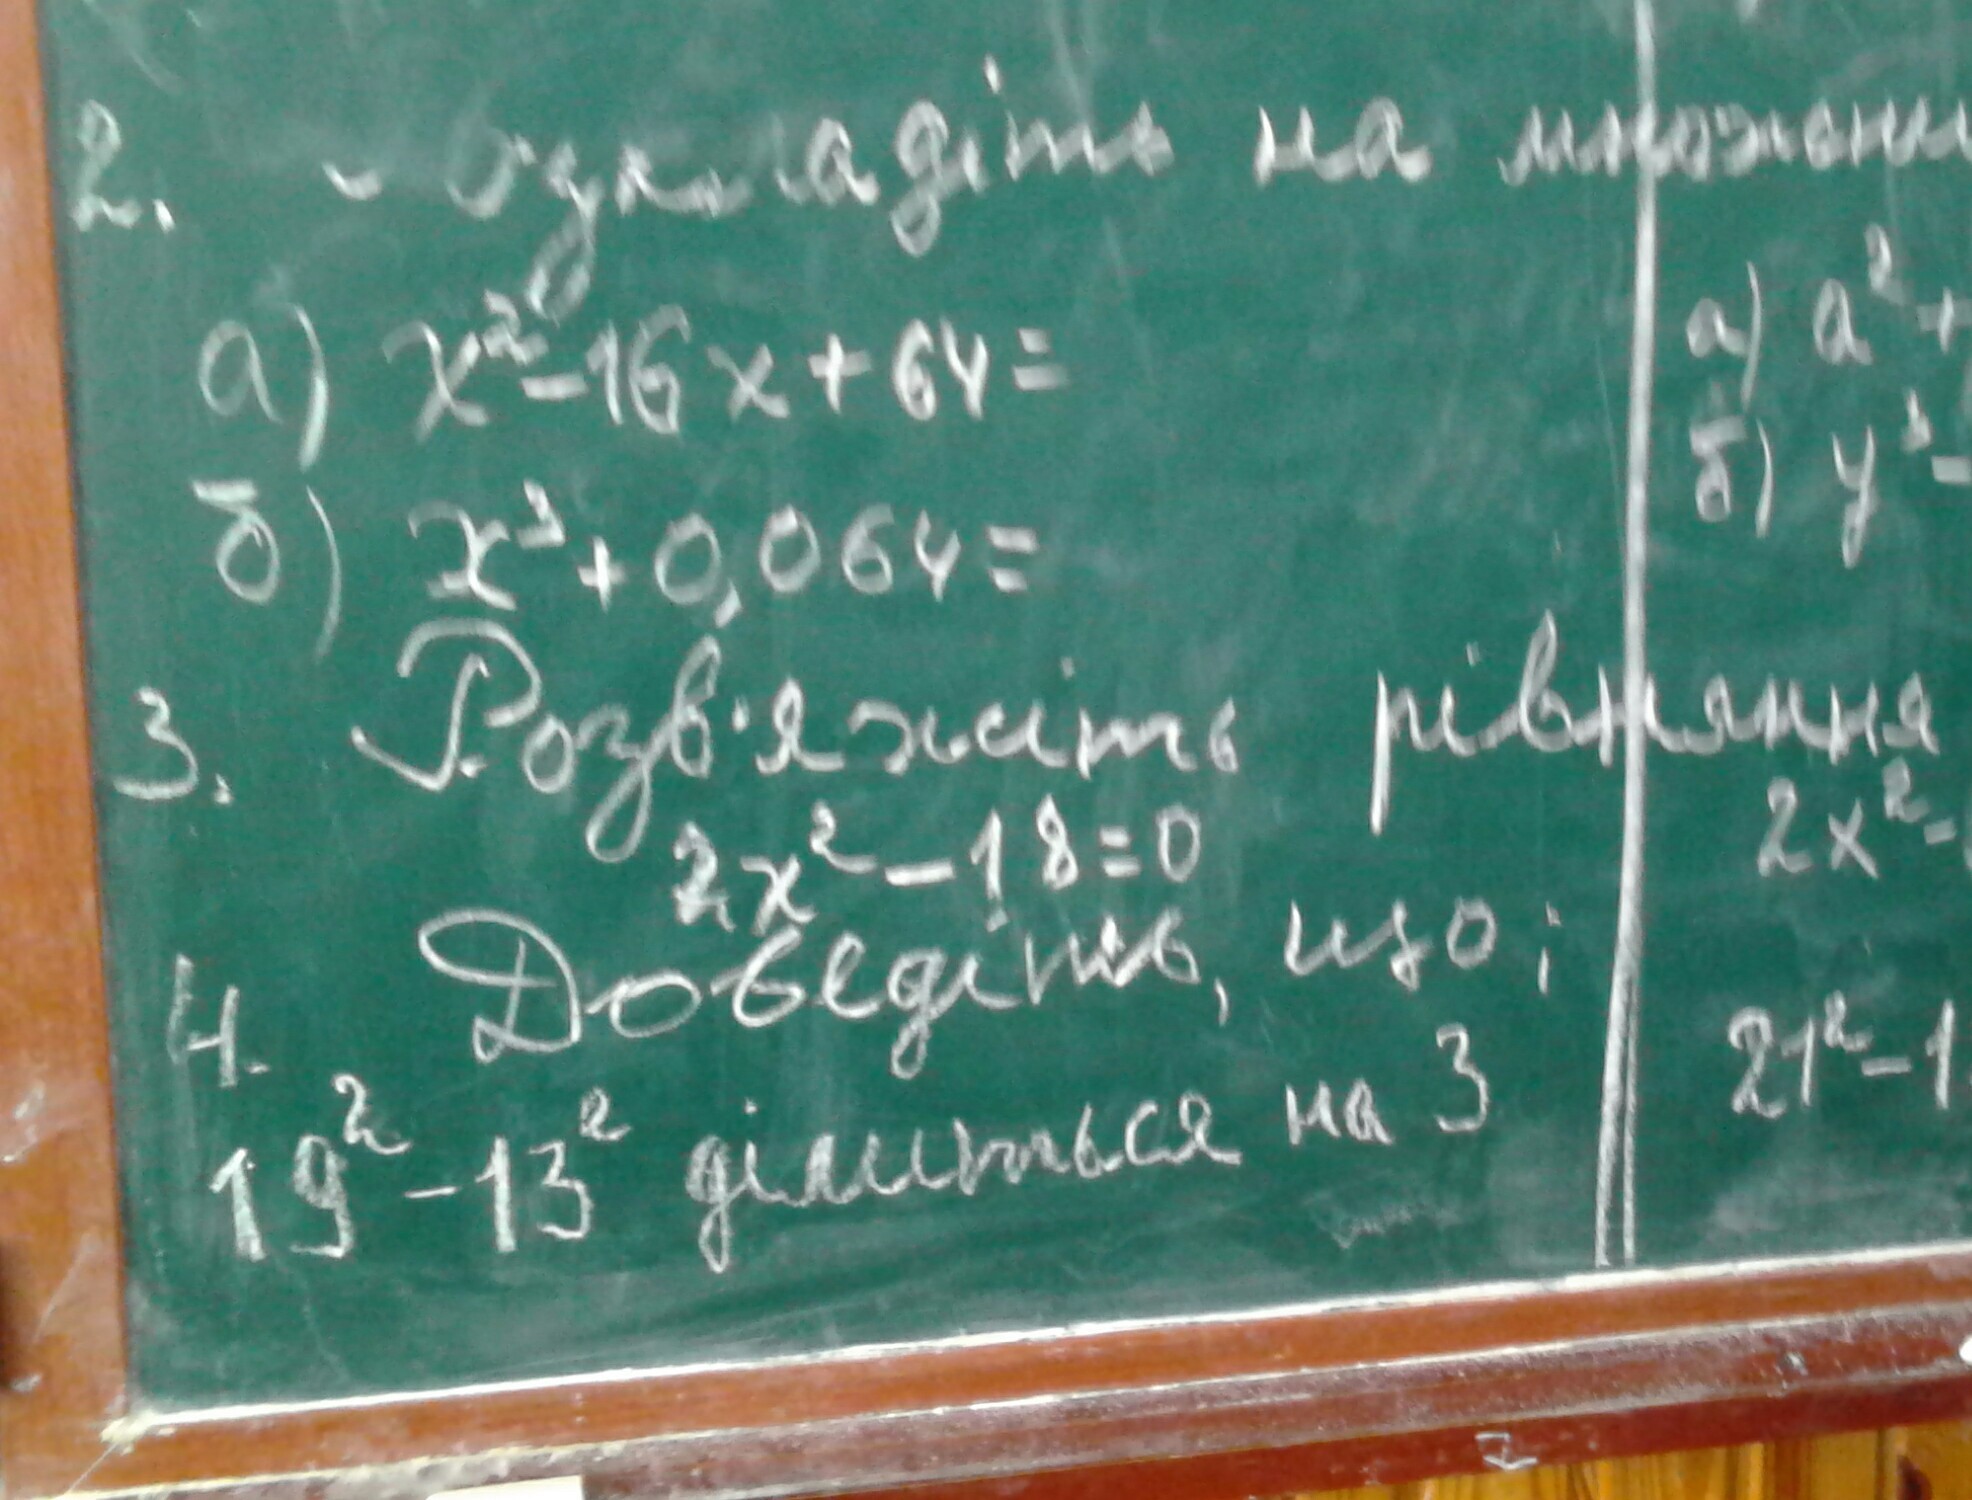 2. Розкладіть на множники
а) x² - 16x + 64 =
б) x³ + 0,064 =
3. Розв'яжіть рівняння
2x² - 18 = 0
4. Доведіть, що:
19² - 13² ділиться на 3
а) a² +
б) y³ -
2x² -
21² - 1